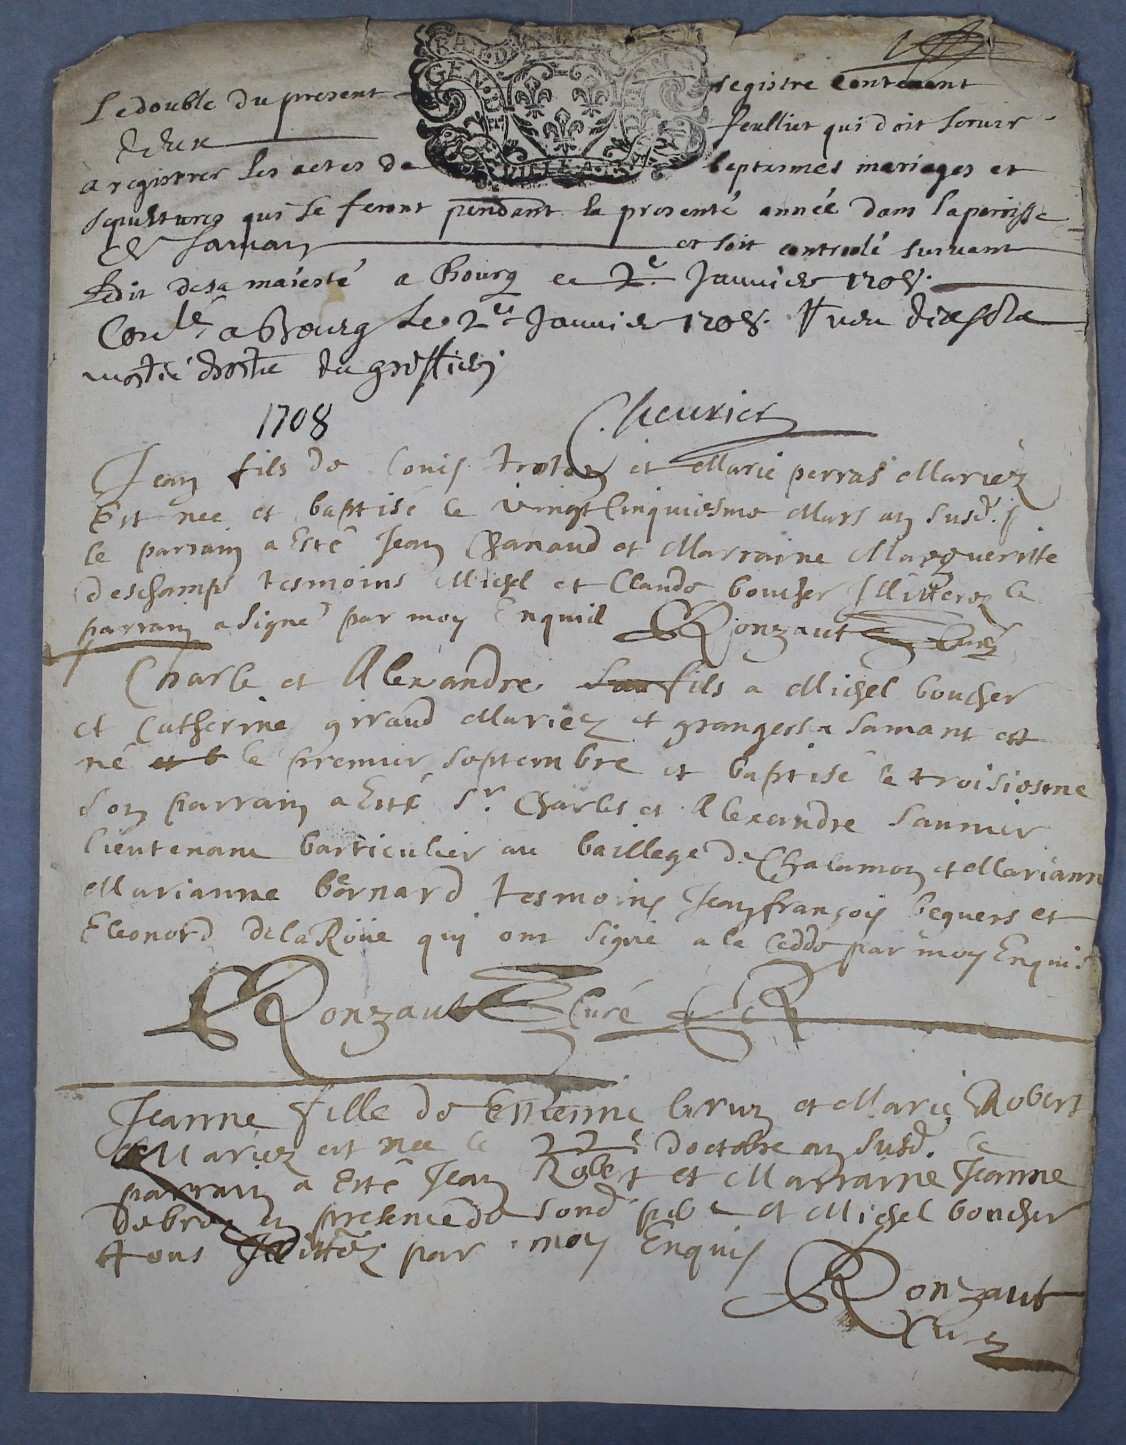 Le double du present registre Contenant
deux feulliet qui doit seruir
a registrer les actes de baptesmes mariages et
sepultures qui se feront pendant la presente année dans la paroisse
de Samans et soit controolé suiuant
Ledit de sa maiesté a Bourg ce 2e Januier 1708.
Conlé a Bourg le 2e Januier 1708.
moitié droits du greffier
Cheurier
1708
Jean fils de Louis et Marie perras Mariez
Est nee et baptisé le vingt Cinquiesme Mars an susd.
le parrain a Esté Jean Chanaud et Marraine Margueritte
deschamps tesmoins Michel et Claude boucher Illitterez le
parrain a signé par moy Enquis Ronzaut Curé
Charle et Alexandre fils a Michel boucher
et Catherine girraud Mariez et grangers a Samant est
né et b le premier septembre et baptisé le troisiesme
son parrain a Esté Sr. Charles et Alexandre Saunier
lieutenant particulier au baillege de Chalamon et Mariann
Marianne bernard tesmoins Jean françois bequers et
Eleonord de la Roüe qui ont signé a la cedde par moy Enquis
Ronzaut Curé
Jeanne fille de Estienne et Marie Robert
Mariez est nee le 22e d'octobre an susd. le
parrain a Esté Jean Robert et Marraine Jeanne
debros en presence de sond pere et Michel boucher
tous Illitterez par moy Enquis
Ronzaut
Curé